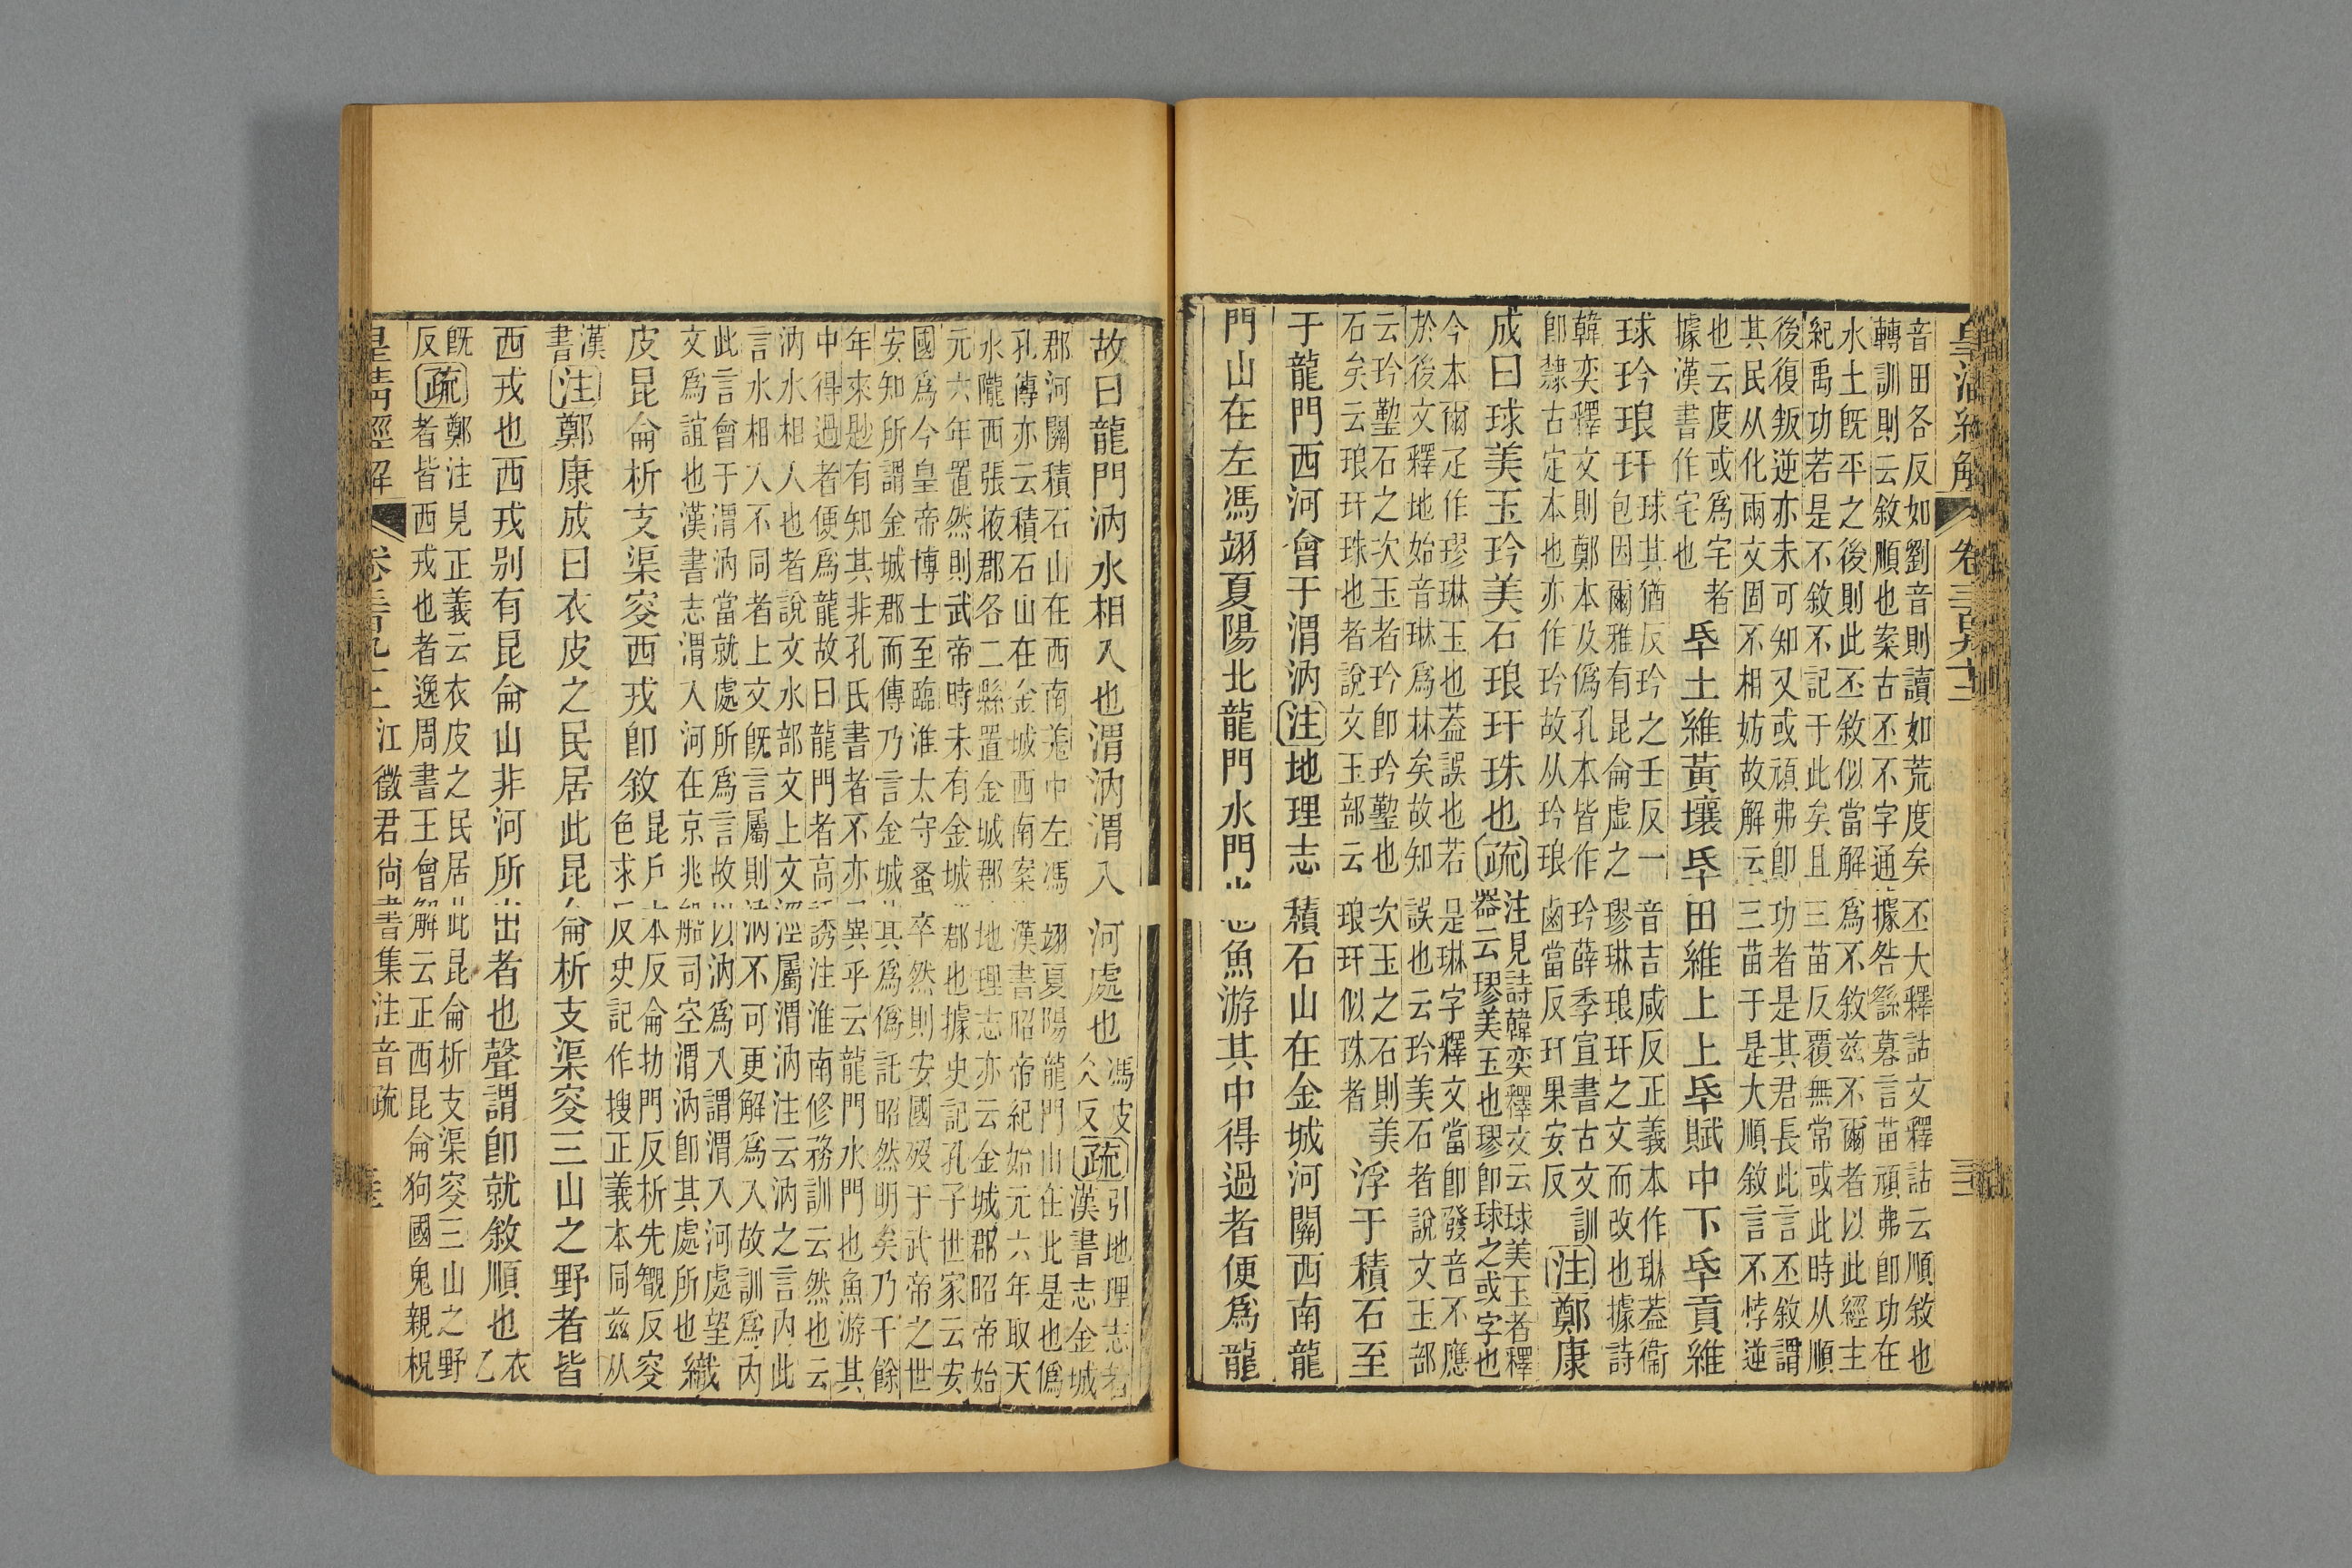 皇清經解 卷三百九十二 三
音田各反如劉音則讀如荒度矣丕大釋詁文釋詁云順敘也
轉訓則云敘順也案古丕不字通據咎繇暮言苗頑弗卽功在
水土旣平之後則此丕敘似當解爲不敘兹不爾者以此經主
紀禹功若是不敘不記于此矣且三苗反覆無常或此時从順
後復叛逆亦未可知又或頑弗卽功者是其君長此言丕敘謂
其民从化兩文固不相妨故解云三苗于是大順敘言不悖逆
也云度或爲宅者
據漢書作宅也
氒土維黃壤氒田維上上氒賦中下氒貢維
球玪琅玕
球其猶反玪之壬反一音吉咸反正義本作琳蓋衞
包因爾雅有昆侖虛之璆琳琅玕之文而改也據詩
韓奕釋文則鄭本及僞孔本皆作玪薛季宣書古文訓
卽隸古定本也亦作玪故从玪琅鹵當反玕果安反
注鄭康
成曰球美玉玪美石琅玕珠也疏
注見詩韓奕釋文云球美玉者釋
器云璆美玉也璆卽球之或字也
今本爾疋作璆琳玉也蓋誤也若是琳字釋文當卽發音不應
於後文釋地始音琳爲林矣故知誤也云玪美石者說文玉部
云玪䃘石之次玉者玪卽玪䃘也次玉之石則美
石矣云琅玕珠也者說文玉部云琅玕似珠者
浮于積石至
于龍門西河會于渭汭注地理志積石山在金城河關西南龍
門山在左馮翊夏陽北龍門水門也魚游其中得過者便爲龍
故曰龍門汭水相入也渭汭渭入河處也
馮皮
仌反
疏
引地理志者
漢書志金城
郡河關積石山在西南羌中左馮翊夏陽龍門山在北是也僞
孔傳亦云積石山在金城西南案漢書昭帝紀始元六年取天
水隴西張掖郡各二縣置金城郡地理志亦云金城郡昭帝始
元六年置然則武帝時未有金城郡也據史記孔子世家云安
國爲今皇帝博士至臨淮太守蚤卒然則安國歿于武帝之世
安知所謂金城郡而傳乃言金城其爲僞託昭然明矣乃千餘
年來尟有知其非孔氏書者不亦異乎云龍門水門也魚游其
中得過者便爲龍故曰龍門者高誘注淮南修務訓云然也云
汭水相入也者說文水部文上文涇屬渭汭注云汭之言內此
言水相入不同者上文旣言屬則汭不可更解爲入故訓爲內
此言會于渭汭當就處所爲言故以汭爲入謂渭入河處望
文爲誼也漢書志渭入河在京兆船司空渭汭卽其處所也
織
皮昆侖析支渠㝜西戎卽敘
昆戶本反侖扐門反析先覩反㝜
色求反史記作搜正義本同兹从
漢
書
注鄭康成曰衣皮之民居此昆侖析支渠㝜三山之野者皆
西戎也西戎別有昆侖山非河所出者也聲謂卽就敘順也
衣
乙
旣
反
疏
鄭注見正義云衣皮之民居此昆侖析支渠㝜三山之野
者皆西戎也者逸周書王會解云正西昆侖狗國鬼親枳
皇清經解 卷三百九十二 江徵君尚書集注音疏